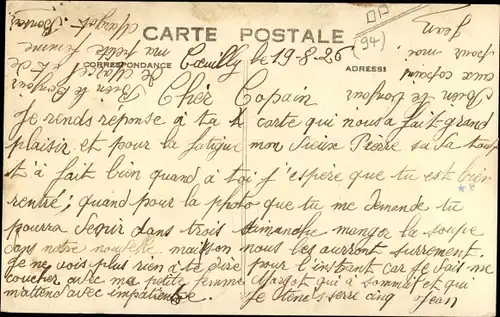 CARTE POSTALE
(94)
CORRESPONDANCE
ADRESSE
Cœuilly le 19-8-26
Cher Copain
Je rends réponse à ta carte qui nous a fait grand
plaisir et pour la fatigue mon vieux Pierre sa va tout
t'à fait bien quand à toi j'espère que tu est bien
rentré; quand pour la photo que tu me demande tu
pourra venir dans trois dimanche manger la soupe
dans notre nouvelle maison nous les aurront surrement.
Je ne vois plus rien à te dire pour l'instant car je vais me
coucher avec ma petite femme Margot qui à sommeil et qui
m'attend avec impatience. Je te serre cinq Jean
Bien le bonjour
de Marcel et de
ma petite femme
Margot. Bonsoir
Bien le bonjour
aux copains
pour moi
Jean